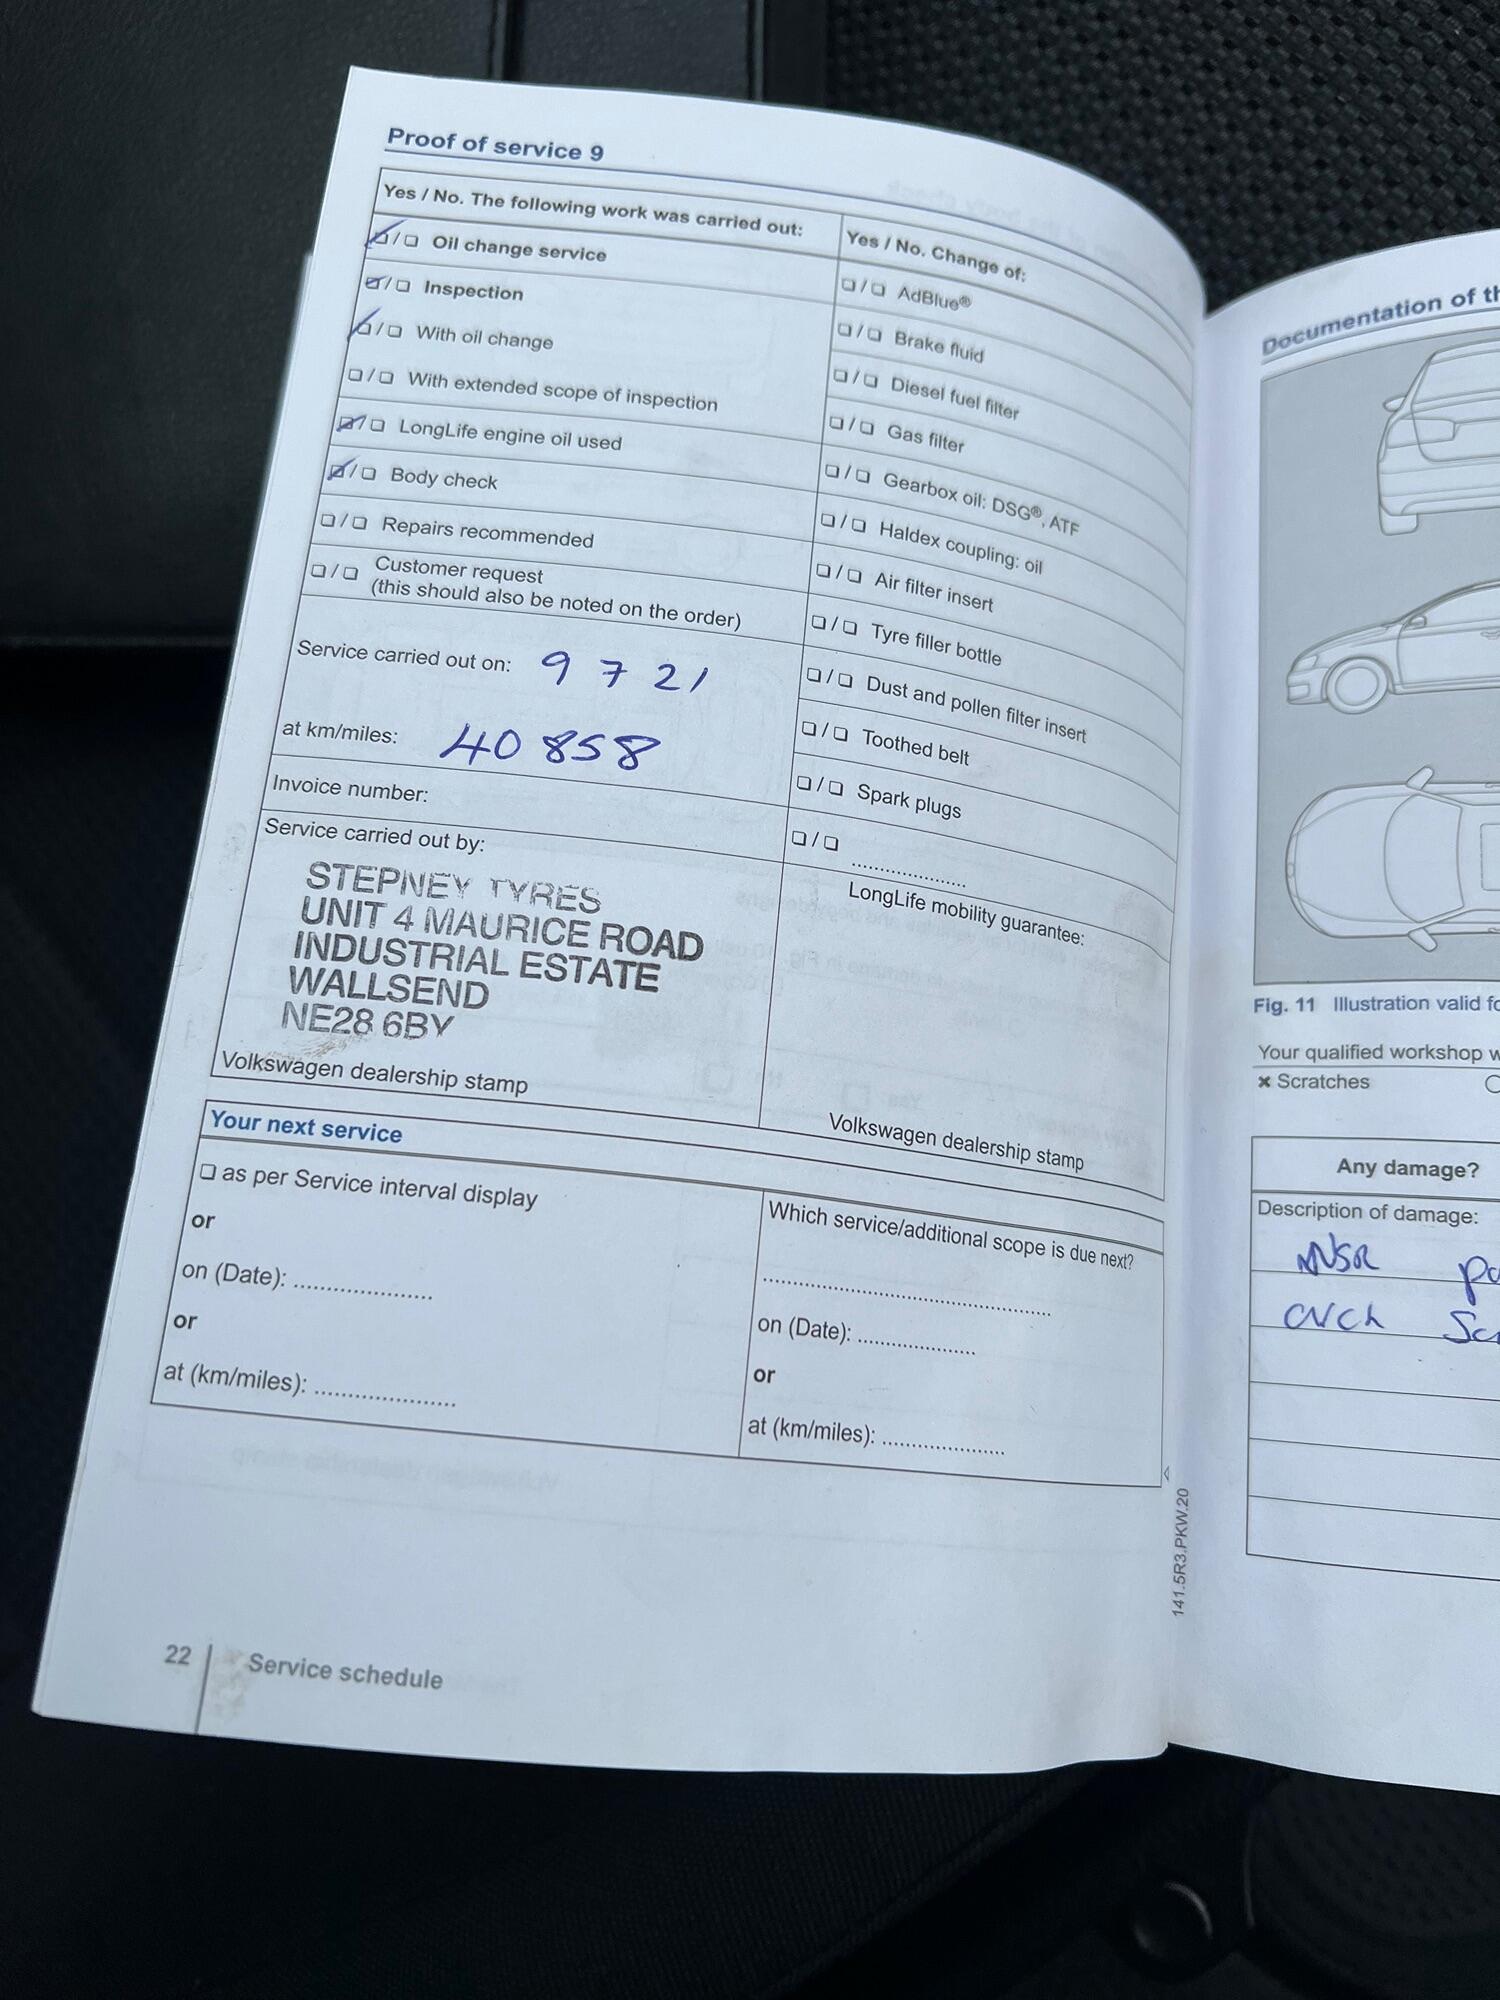 Proof of service 9
Yes / No. The following work was carried out:
❏ / ❏ Oil change service
❏ / ❏ Inspection
❏ / ❏ With oil change
❏ / ❏ With extended scope of inspection
❏ / ❏ LongLife engine oil used
❏ / ❏ Body check
❏ / ❏ Repairs recommended
❏ / ❏ Customer request
(this should also be noted on the order)
Service carried out on: 9 7 21
at km/miles: 40 858
Invoice number:
Service carried out by:
STEPNEY TYRES
UNIT 4 MAURICE ROAD
INDUSTRIAL ESTATE
WALLSEND
NE28 6BY
Volkswagen dealership stamp
Yes / No. Change of:
❏ / ❏ AdBlue®
❏ / ❏ Brake fluid
❏ / ❏ Diesel fuel filter
❏ / ❏ Gas filter
❏ / ❏ Gearbox oil: DSG®, ATF
❏ / ❏ Haldex coupling: oil
❏ / ❏ Air filter insert
❏ / ❏ Tyre filler bottle
❏ / ❏ Dust and pollen filter insert
❏ / ❏ Toothed belt
❏ / ❏ Spark plugs
❏ / ❏ ......................
LongLife mobility guarantee:
Volkswagen dealership stamp
Your next service
❏ as per Service interval display
or
on (Date): ......................
or
at (km/miles): ......................
Which service/additional scope is due next?
..............................................
on (Date): ....................
or
at (km/miles): ....................
141.5R3.PKW.20
22 Service schedule
Documentation of
Fig. 11 Illustration valid
Your qualified workshop
× Scratches
Any damage?
Description of damage:
NSR